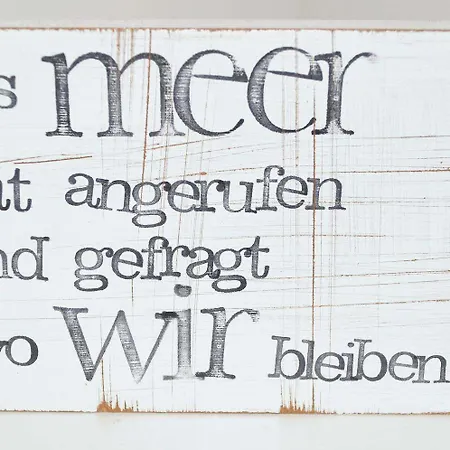 s meer
at angerufen
nd gefragt
wo wir bleiben